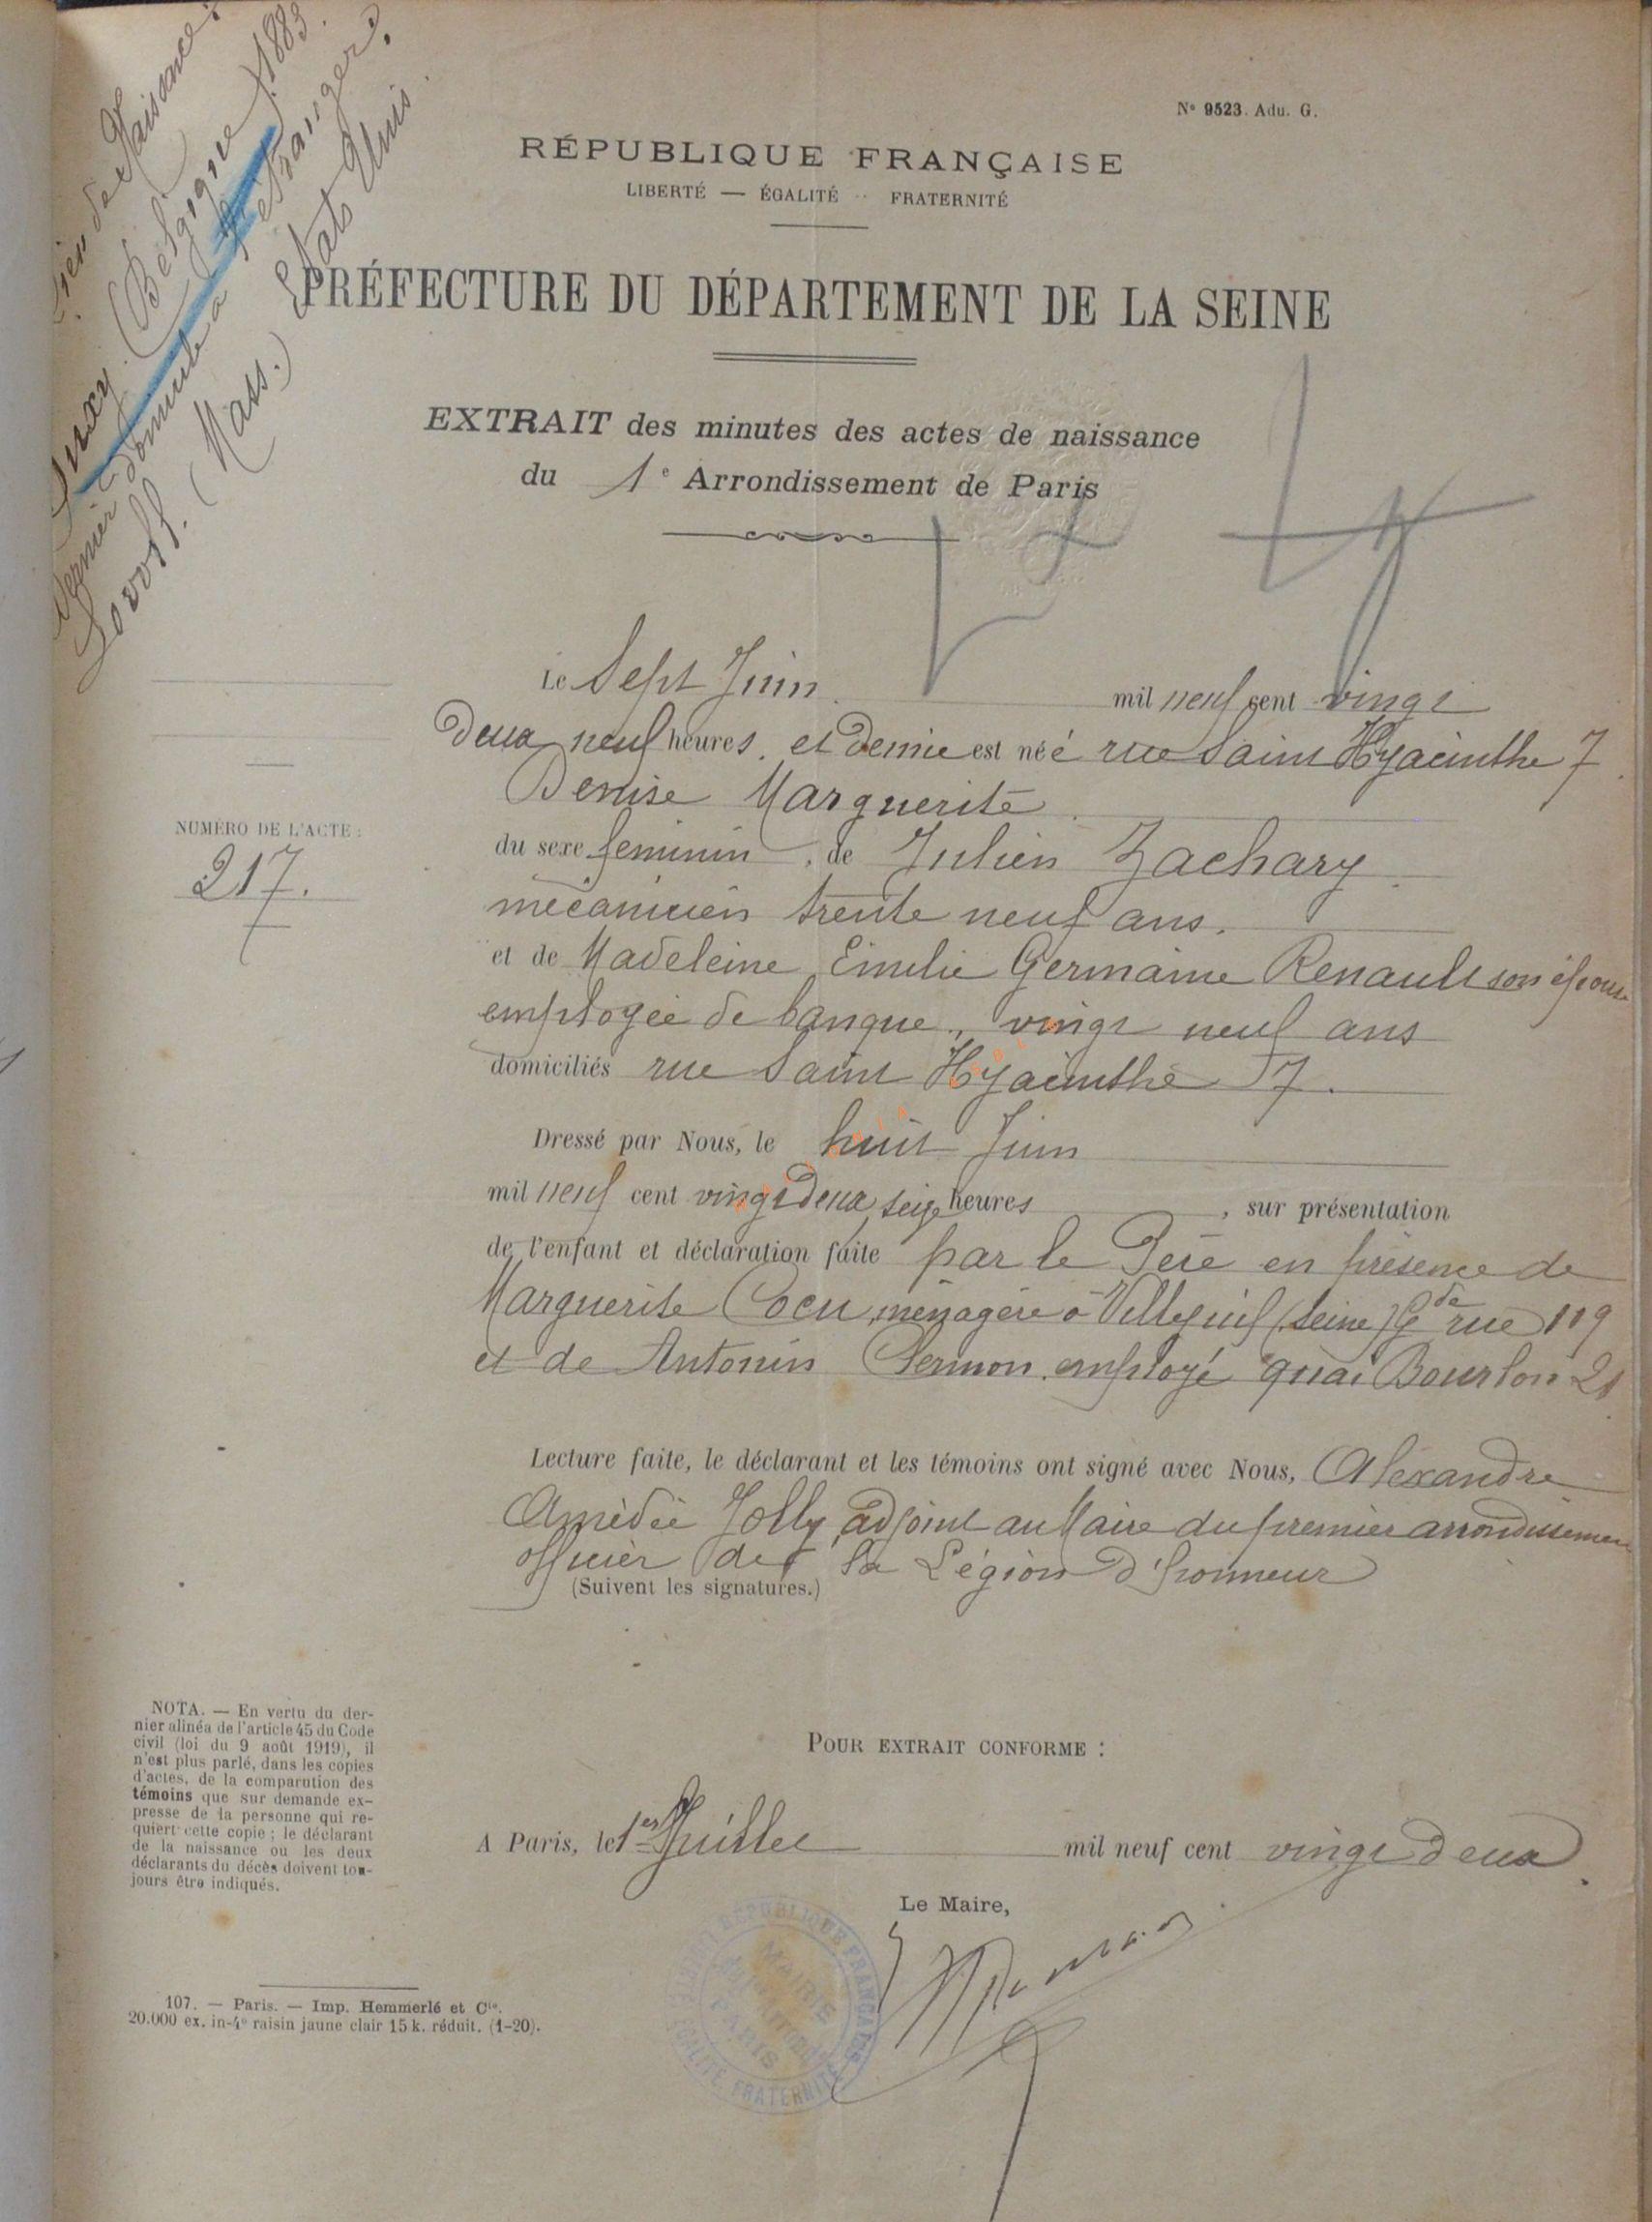 Lieu de Naissance:
Suxy (Belgique) 1883.
Dernier domicile à l'étranger.
Lovoll. (Mass.) Etats Unis.
N° 9523. Adu. G.
RÉPUBLIQUE FRANÇAISE
LIBERTÉ — ÉGALITÉ — FRATERNITÉ
PRÉFECTURE DU DÉPARTEMENT DE LA SEINE
EXTRAIT des minutes des actes de naissance
du 1e Arrondissement de Paris
Le Sept Juin mil neuf cent vingt
deux neuf heures et demie est né é rue Saint Hyacinthe 7
Denise Marguerite
du sexe feminin, de Julien Zachary
mécanicien trente neuf ans.
et de Madeleine Emilie Germaine Renault son épouse
employée de banque, vingt neuf ans
domiciliés rue Saint Hyacinthe 7.
Dressé par Nous, le huit Juin
mil neuf cent vingt deux, seize heures, sur présentation
de l'enfant et déclaration faite par le Père en présence de
Marguerite Cocu, ménagère à Villejuif (Seine) Gde rue 119
et de Antonin Clermon, employé quai Bourbon 21
Lecture faite, le déclarant et les témoins ont signé avec Nous, Alexandre
Amédée Jolly, adjoint au Maire du premier arrondissement
officier de la Légion d'honneur
(Suivent les signatures.)
NUMÉRO DE L'ACTE:
217.
NOTA. — En vertu du der-
nier alinéa de l'article 45 du Code
civil (loi du 9 août 1919), il
n'est plus parlé, dans les copies
d'actes, de la comparution des
témoins que sur demande ex-
presse de la personne qui re-
quiert cette copie ; le déclarant
de la naissance ou les deux
déclarants du décès doivent tou-
jours être indiqués.
POUR EXTRAIT CONFORME :
A Paris, le 1er Juillet mil neuf cent vingt deux.
Le Maire,
RÉPUBLIQUE FRANÇAISE
LIBERTÉ ÉGALITÉ FRATERNITÉ
MAIRIE
PARIS
107. — Paris. — Imp. Hemmerlé et Cie.
20.000 ex. in-4° raisin jaune clair 15 k. réduit. (1-20).